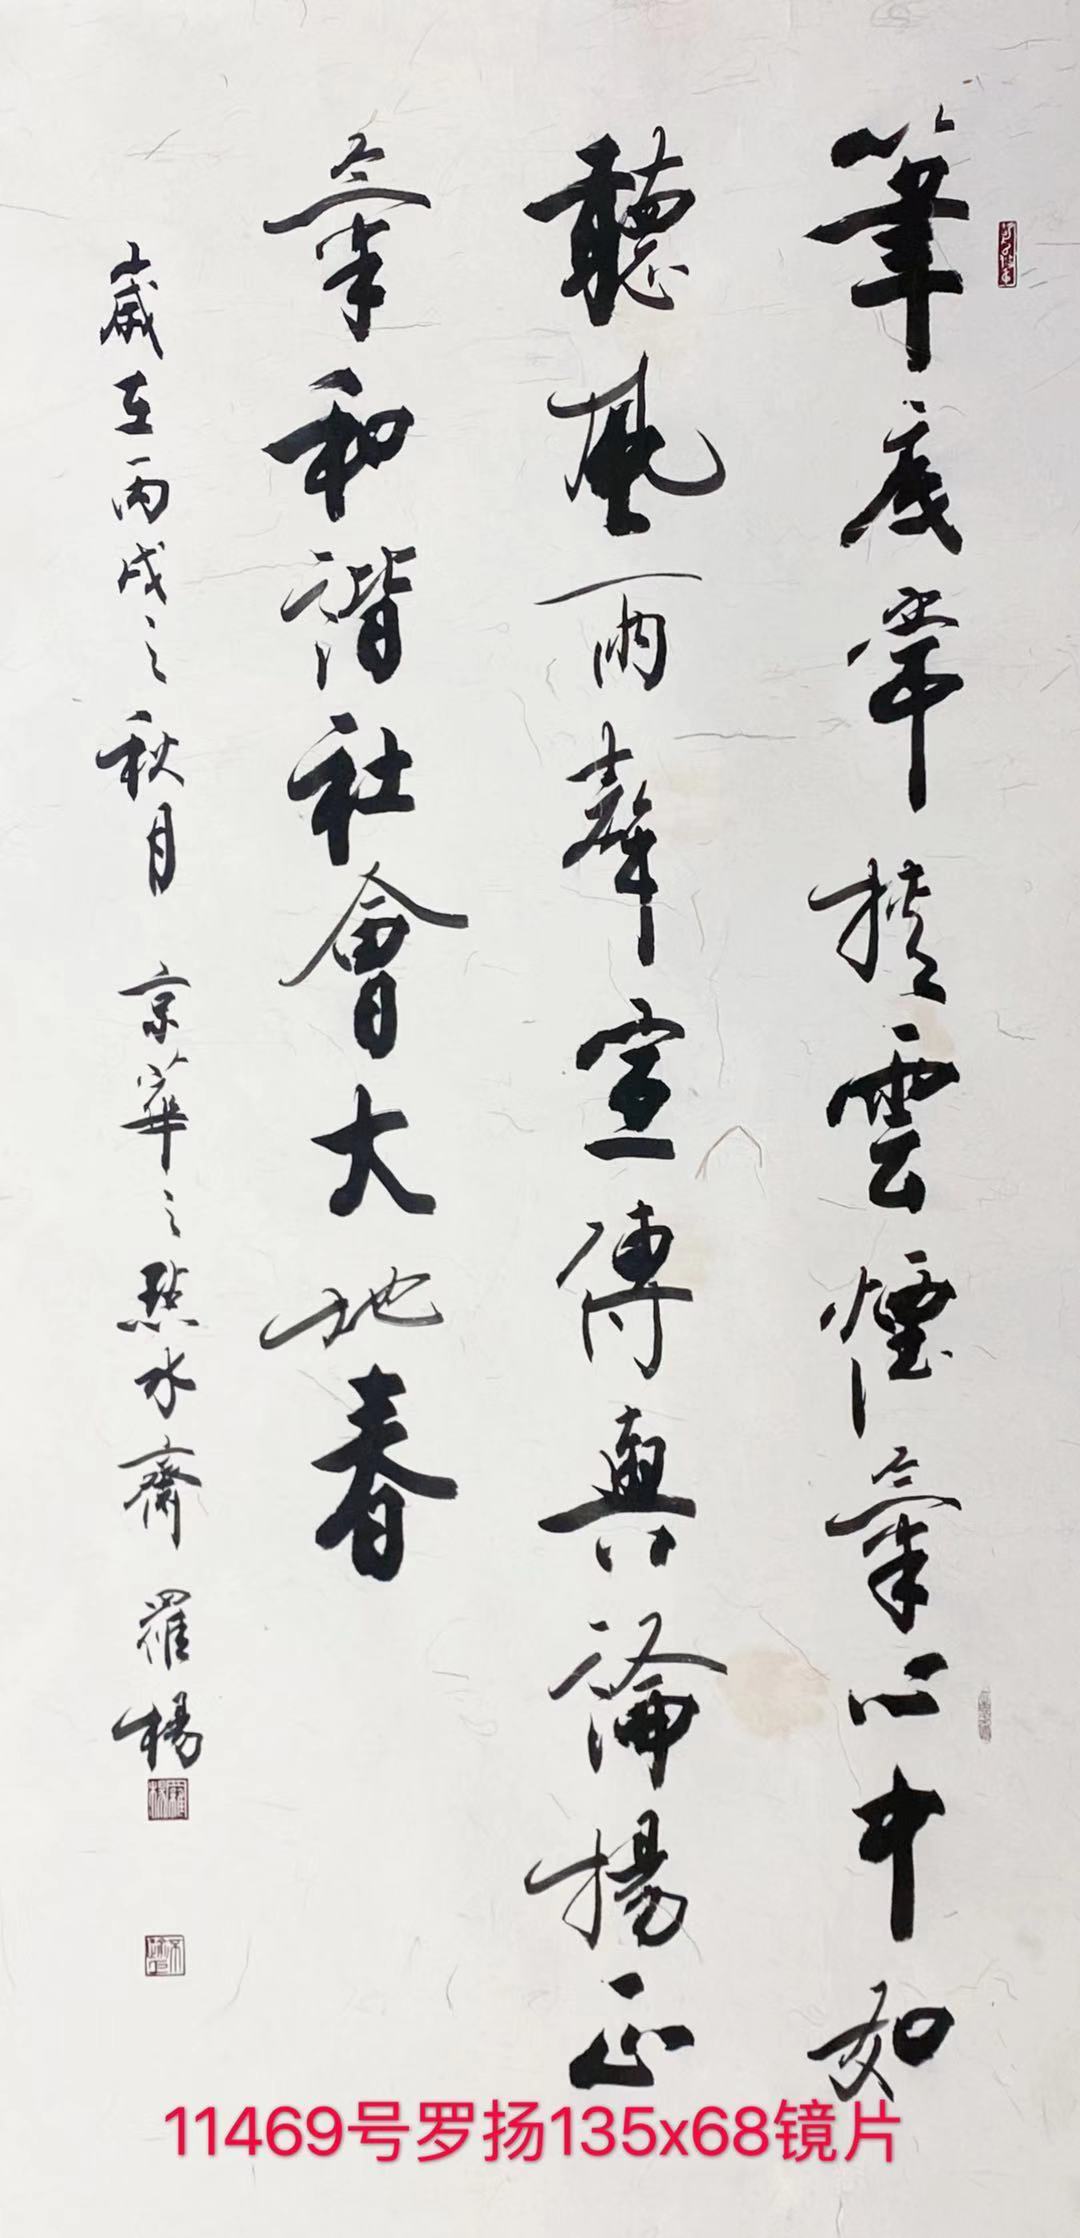 筆底常挾雲煙氣心中如
聽風雨聲宣傳輿論揚正
氣和諧社會大地春
歲在丙戌之秋月 京華之點水齋 羅楊
11469号罗扬135x68镜片